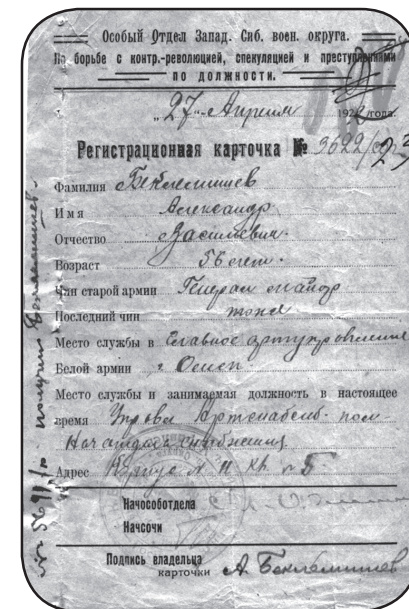 Особый Отдел Запад. Сиб. воен. округа.
По борьбе с контр.-революцией, спекуляцией и преступлениями
по должности.
"27" Апреля 192 года.
Регистрационная карточка № 3622/
Фамилия Беклемишев
Имя Александр
Отчество Васильевич.
Возраст 56 лет.
Чин старой армии Генерал майор
Последний чин тоже
Место службы в Главное артуправление
Белой армии г. Омск
Место службы и занимаемая должность в настоящее
время Управ. Артснабжен. пом.
Начальника снабжения
Адрес Корпус № 11 кв. № 5
Начособотдела
Начсочи
Подпись владельца А. Беклемишев
карточки
получил Беклемишев.